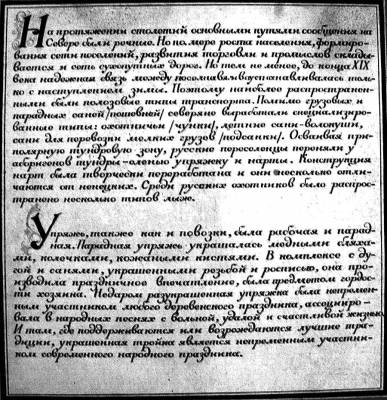 На протяжении столетий основными путями сообщения на
Севере были речные. Но по мере роста населения, формиро-
вания сети поселений, развития торговли и промыслов склады-
вается и сеть сухопутных дорог. Но тем не менее, до конца XIX
века надежная связь между поселениями устанавливалась только
с наступлением зимы. Поэтому наиболее распространен-
ными были полозовые типы транспорта. Помимо грузовых и
парадных саней /пошевней/ северяне выработали специализиро-
ванные типы: охотничьи /чунки/, летние сани-волокуши,
сани для перевозки мелких грузов /подсанки/. Осваивая при-
полярную тундровую зону, русские переселенцы переняли у
аборигенов тундры оленью упряжку и нарты. Конструкция
нарт была творчески переработана и они несколько отли-
чаются от ненецких. Среди русских охотников было распрос-
транено несколько типов лыж.
Упряжь, также как и повозки, была рабочая и парад-
ная. Парадная упряжь украшалась медными бляха-
ми, колечками, кожаными кистями. В комплексе с ду-
гой и санями, украшенными резьбой и росписью, она про-
изводила праздничное впечатление, была предметом гордос-
ти хозяина. Недаром разукрашенная упряжка была непремен-
ным участником любого деревенского праздника, ассоцииро-
вала в народных песнях с вольной, удалой и счастливой жизнью.
И там, где поддерживаются или возрождаются лучшие тра-
диции, украшенная тройка является непременным участни-
ком современного народного праздника.